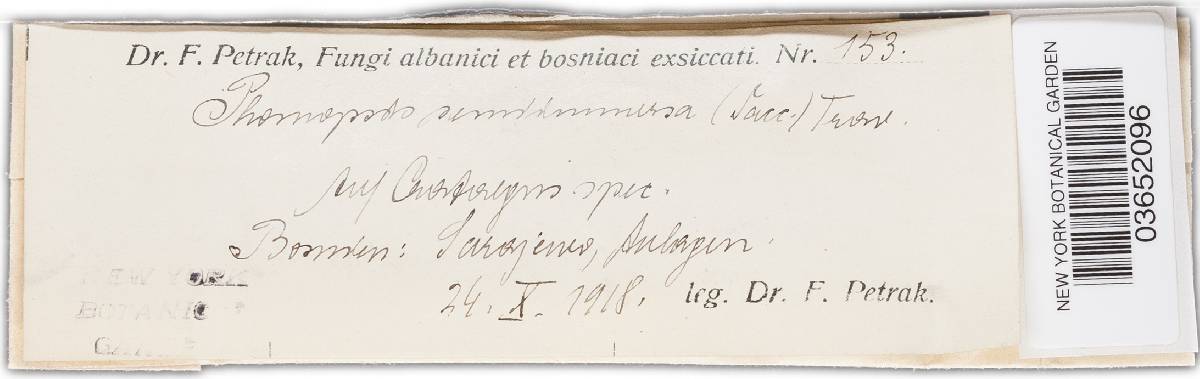 Dr. F. Petrak, Fungi albanici et bosniaci exsiccati. Nr. 153.
Phomopsis semiimmersa (Sacc.) Trav.
Auf Crataegus spec.
Bosnien: Sarajewo, Anlagen.
24. X. 1918. leg. Dr. F. Petrak.
NEW YORK
BOTANIC
NEW YORK BOTANICAL GARDEN
03652096